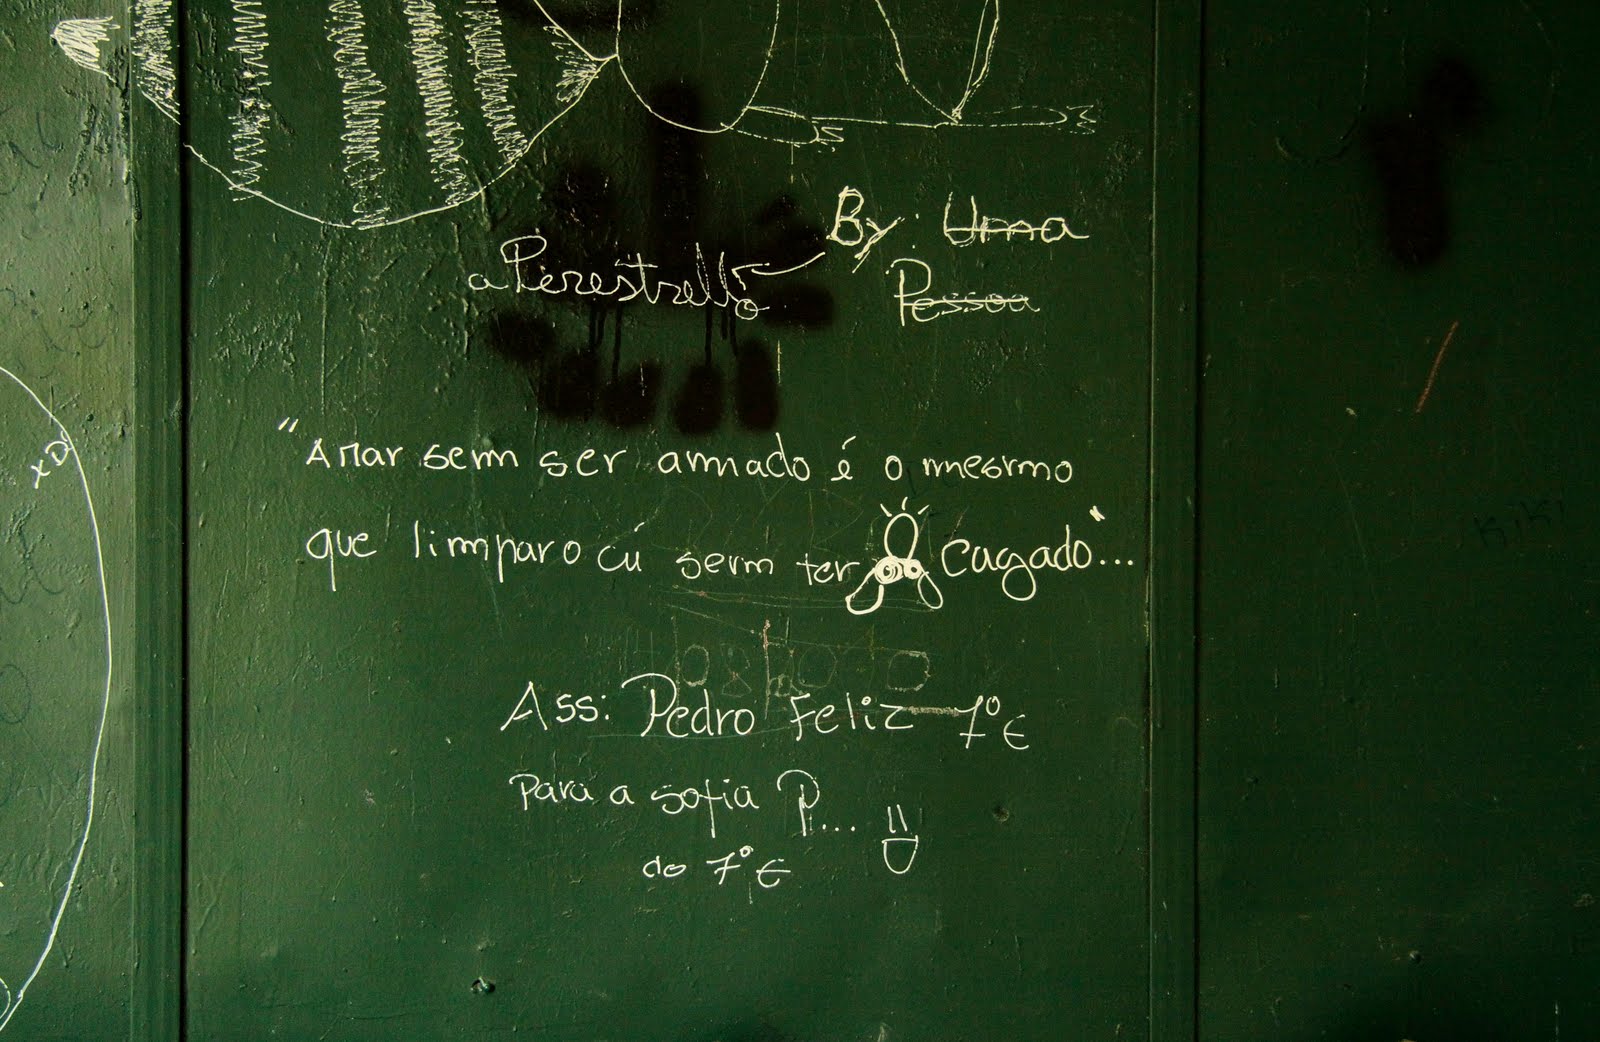 By: Uma
Pessoa
a Perestrello
"Amar sem ser amado é o mesmo
que limpar o cú sem ter cagado"...
Ass: Pedro Feliz - 7º E
Para a sofia P... =D
do 7º E
XD
KiKi